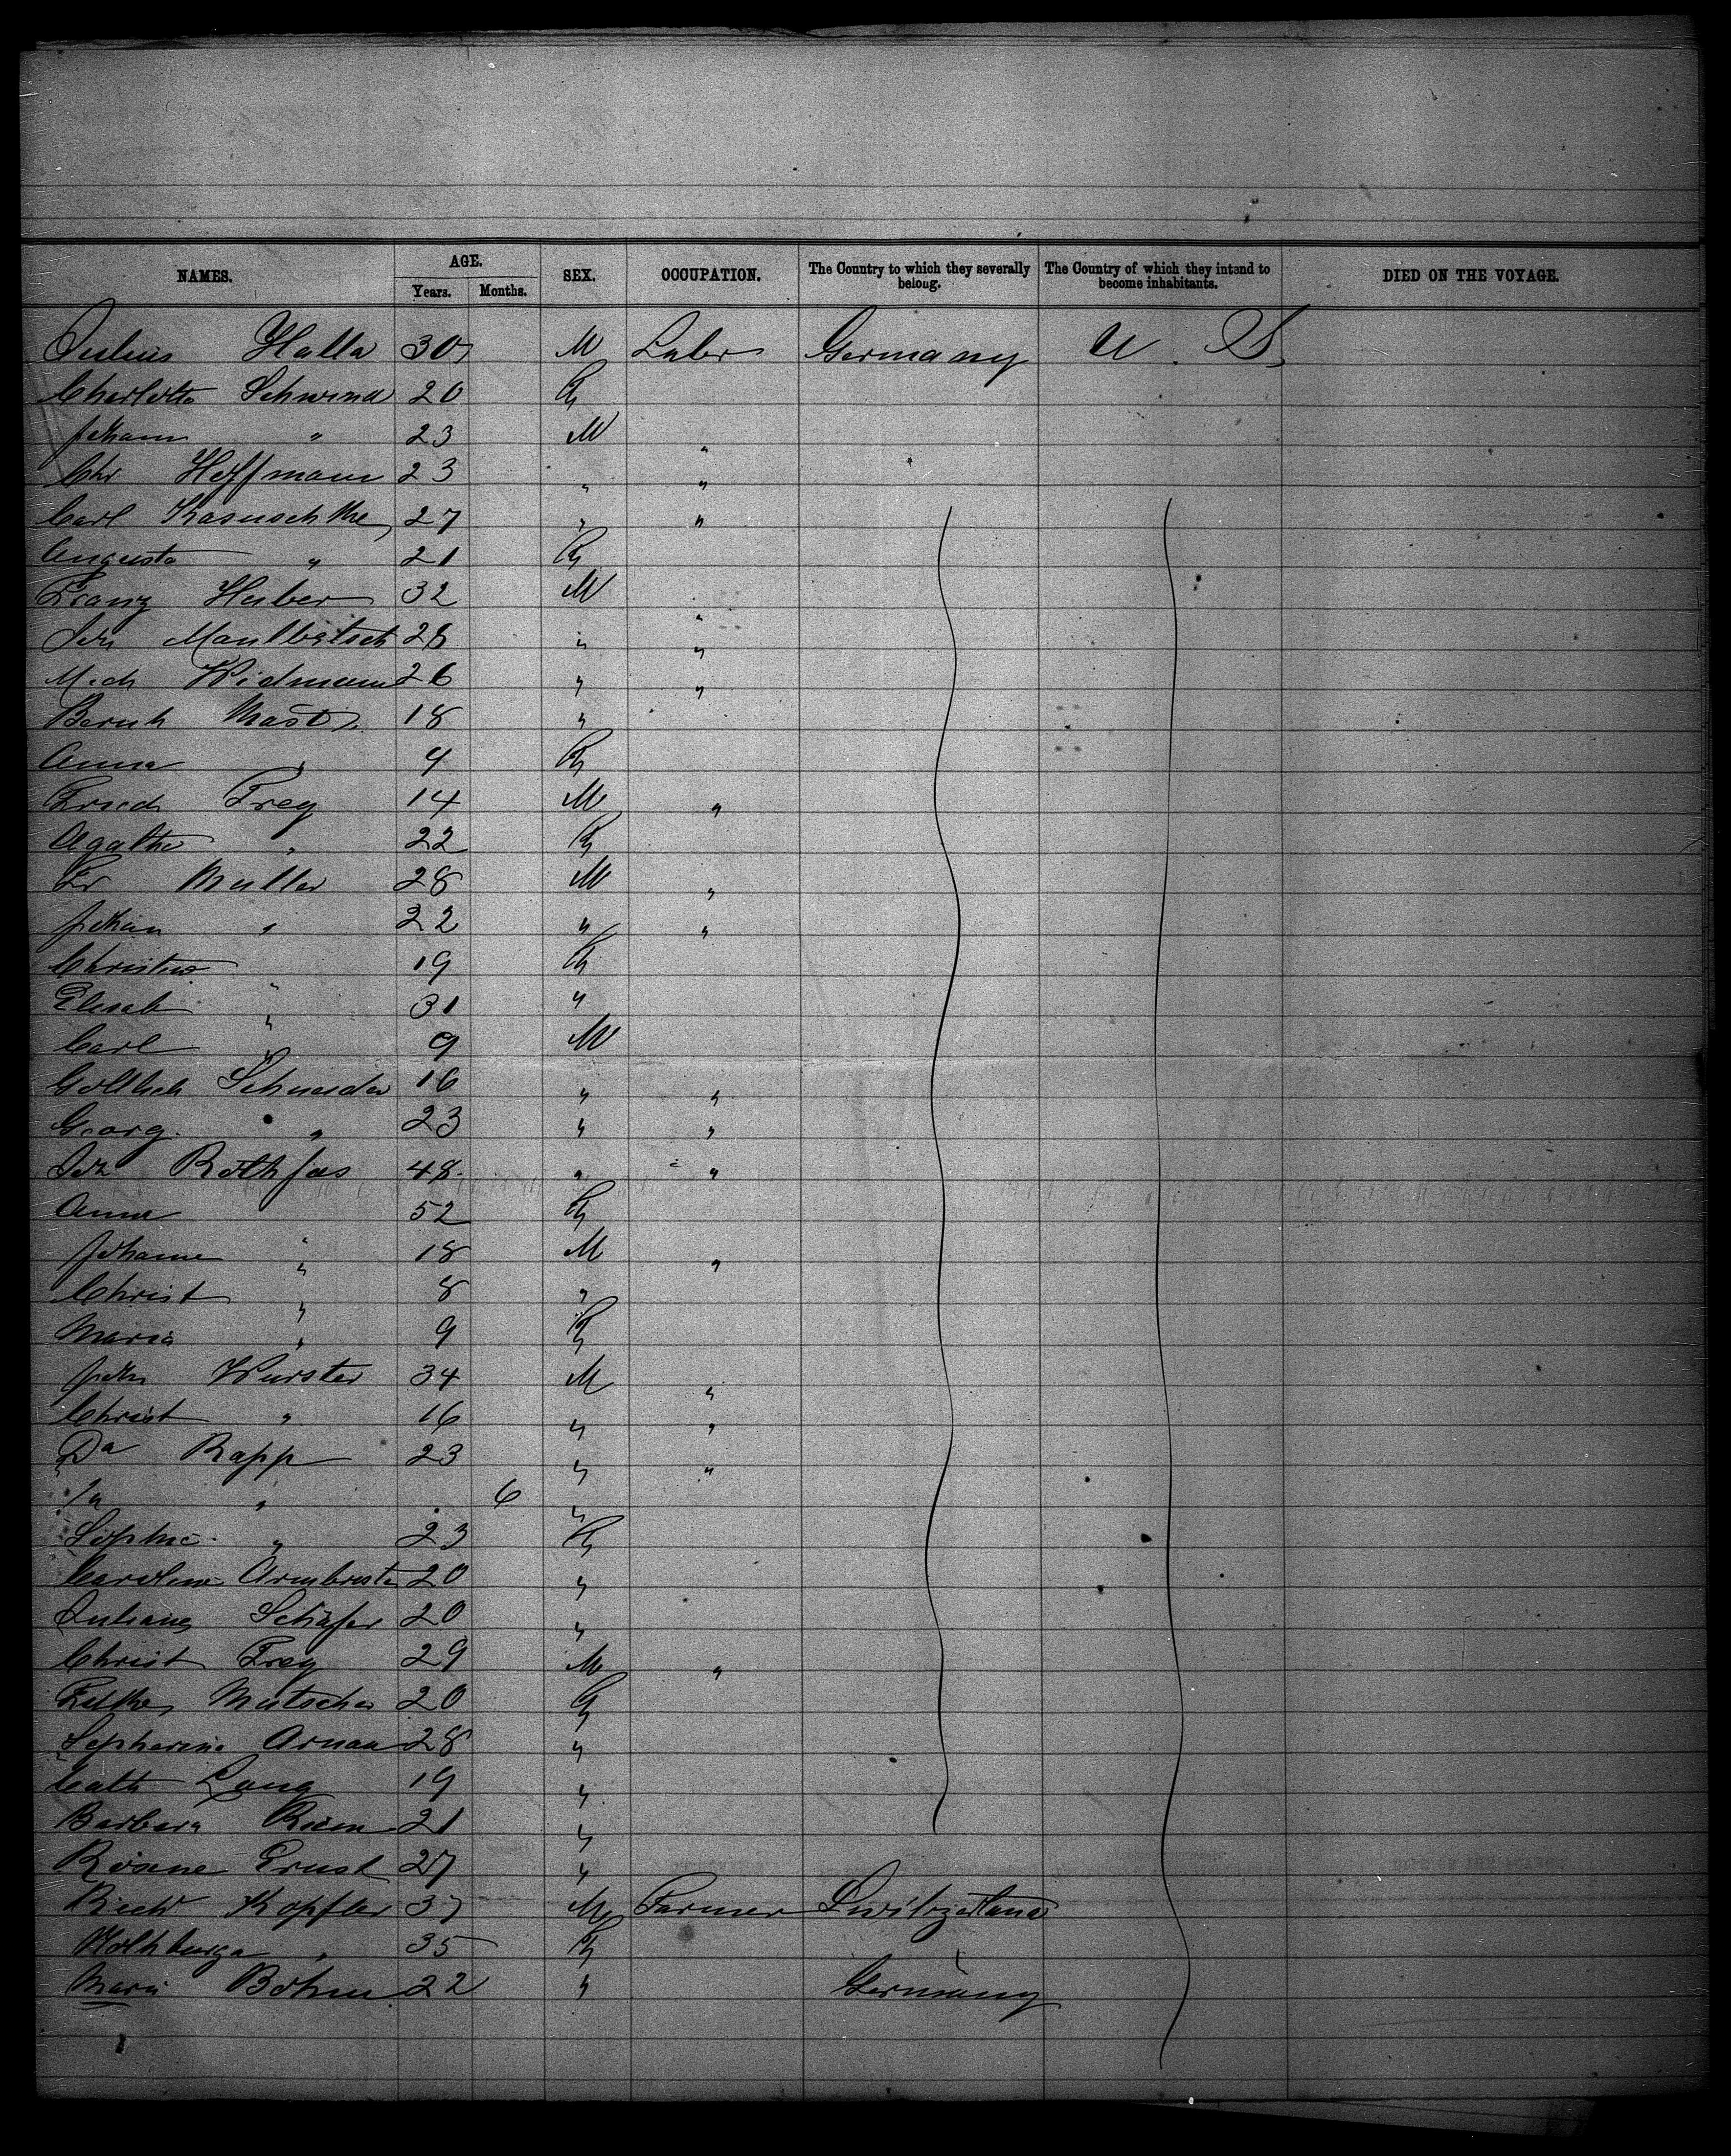 NAMES. AGE. SEX. OCCUPATION. The Country to which they severally belong. The Country of which they intend to become inhabitants. DIED ON THE VOYAGE.
Years. Months.
Julius Halla 30 M Labr Germany U. S.
Charlotte Schwend 20 F
Johann " 23 M "
Chr Hoffmann 23 " "
Carl Kasuschke 27 " "
Augusta " 21 F
Franz Huber 32 M "
Joh Maulbetsch 28 " "
Mich Widmann 26 " "
Bernh Mast 18 "
Anna " 9 F
Friedr Frey 14 M "
Agathe " 22 F
Fr Muller 28 M "
Johan " 22 " "
Christine " 19 F
Elisab " 31 "
Carl " 9 M
Gottlieb Schneider 16 " "
Georg " 23 " "
Joh Rothfus 48 " "
Anna " 52 F
Johanne " 18 M "
Christ " 8 "
Maria " 9 F
Joh Wurster 34 M "
Christ " 16 " "
Da Rapp 23 " "
" 6 "
Sophie " 23 F
Caroline Armbruster 20 "
Juliane Schäfer 20 "
Christ Frey 29 M "
Mutscher 20 F
Arnau 28 "
Cath Lang 19 "
Barbara 21 "
Rosine Ernst 27 "
Richd Kopfler 37 M Farmer Switzerland
" 35 F
Maria Bohm 22 " Germany